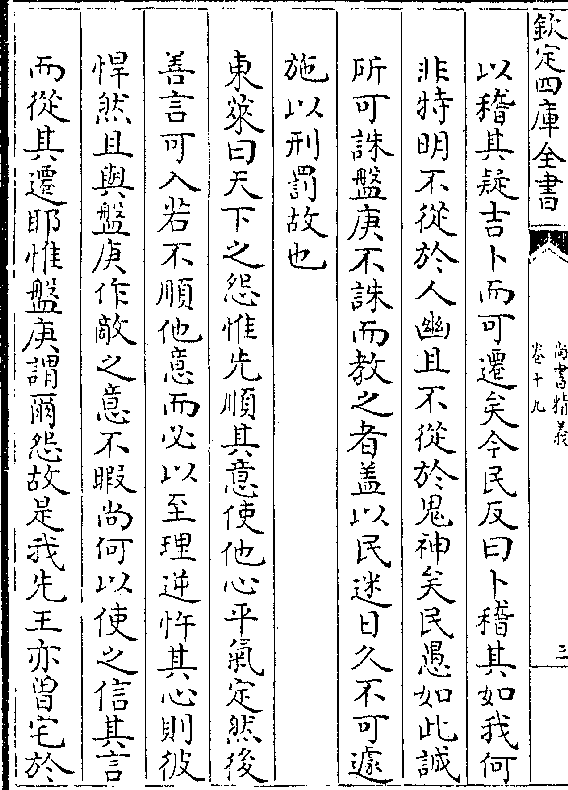 欽定四庫全書
尚書精義
卷十九
三
以稽其疑吉卜而可遷矣今民反曰卜稽其如我何
非特明不從於人幽且不從於鬼神矣民愚如此誠
所可誅盤庚不誅而教之者盖以民迷日久不可遽
施以刑罰故也
東萊曰天下之怨惟先順其意使他心平氣定然後
善言可入若不順他意而必以至理逆忤其心則彼
悍然且與盤庚作敵之意不暇尚何以使之信其言
而從其遷耶惟盤庚謂爾怨故是我先王亦曾宅於